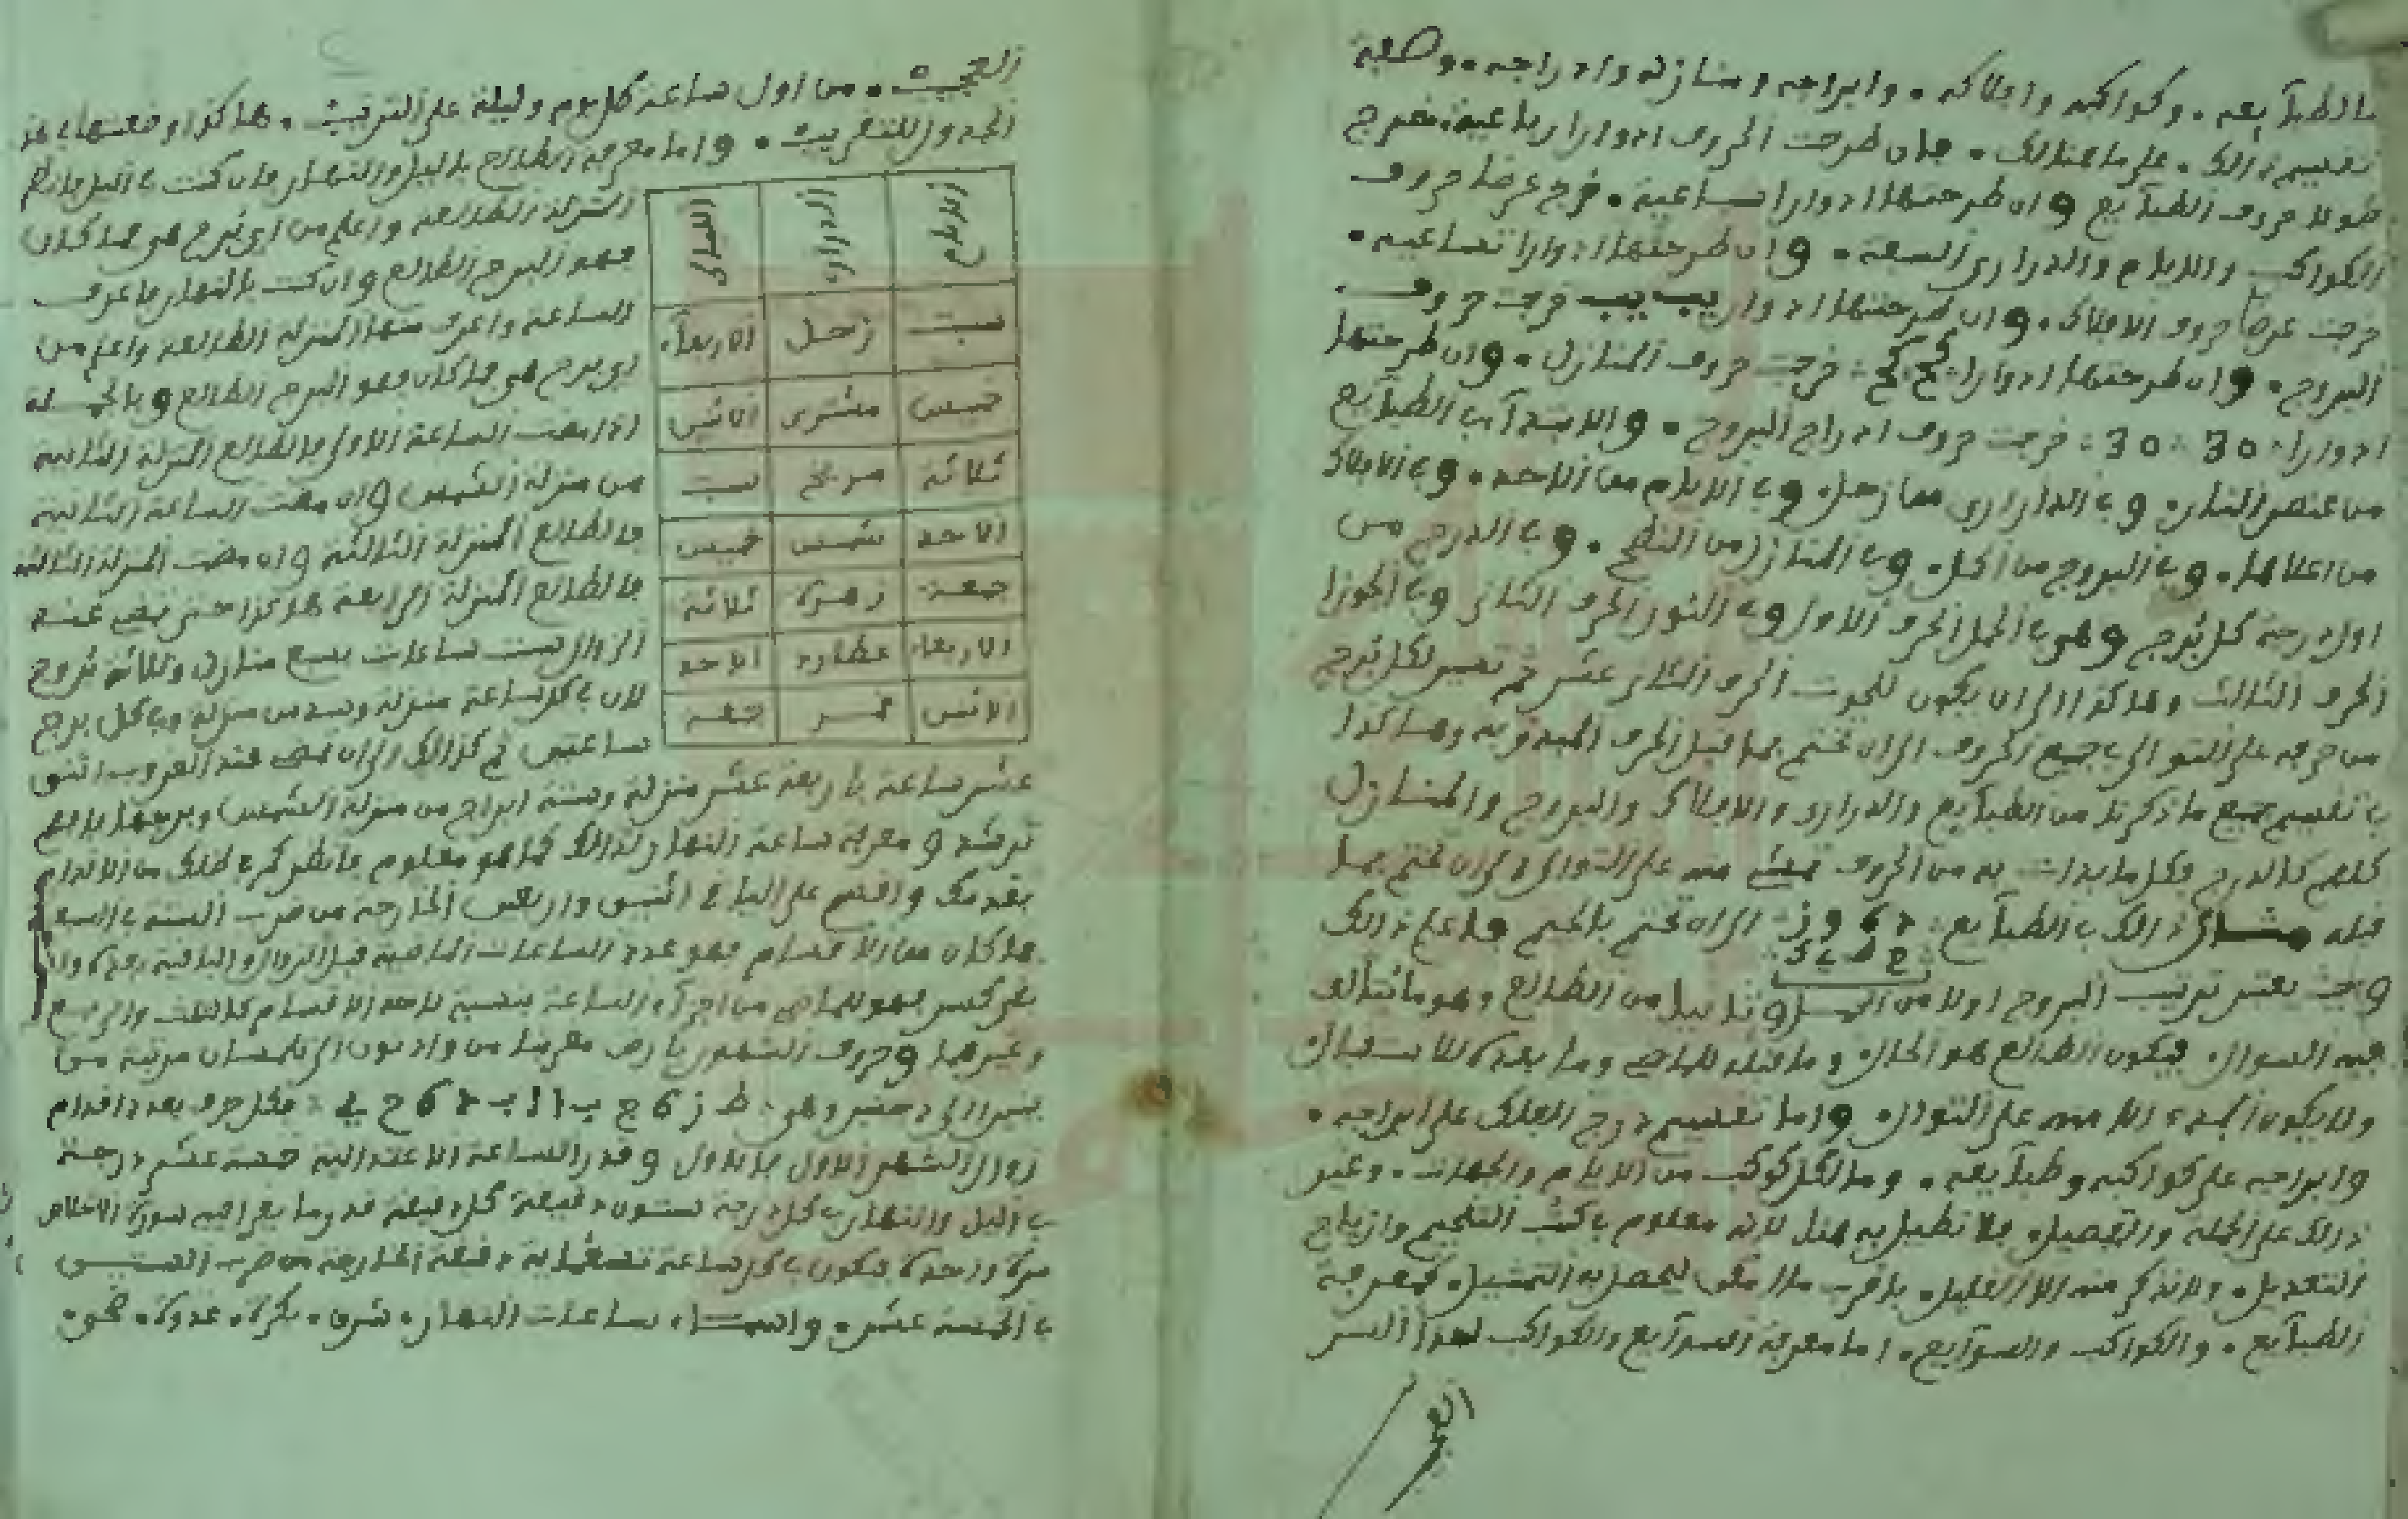 بالطبآيعه. وكواكبه وافلاكه. وابراجه ومنازله وادراجه. وصفة
تقسيم ذالك. على ما هنالك. فان طرحت الحروف ادوارا رباعية. تخرج
طولا حروف الطبآيع وان طرحتها ادوارا سباعية. خرج عرضا حروف
الكواكب والايام والدراري السبعة. وان طرحتها ادوارا تساعية.
خرجت عرضا حروف الافلاك. وان طرحتها ادوار يب يب خرجت حروف
البروج. وان طرحتها ادوارا: كح كح: خرجت حروف المنازل. وان طرحتها
ادوارا: 30: 30: خرجت حروف ادراج البروج. والابتدآ في الطبآيع
من عنصر النار. وفي الداراري من زحل. وفي الايام من الاحد. وفي الافلاك
من اعلاها. وفي البروج من الحمل. وفي المنازل من النطح. وفي الدرج من
اول درجة كل برج وهو في الحمل الحرف الاول وفي الثور الحرف الثاني وفي الجوزا
الحرف الثالث وهاكذا الى ان يكون للحوت الحرف الثاني عشر ثم تسير لكل برج
من حرفه على التوالي في جميع الحروف الى ان تختم بما قبل الحرف المبدو به وهاكذا
في تقسيم جميع ما ذكرنا من الطبآيع والدراري والافلاك والبروج والمنازل
كلهم كالدرج فكل ما بدات به من الحروف تمشي منه على التوالي الى ان تختم بما
قبله مثال ذالك في الطبآيع: د ه و ز: الى ان تختم بالجيم فاعلم ذالك
ح ط ي ك
وحيث يعتبر ترتيب البروج اولا من الحمل وثانيا من الطالع وهو ما
فيه السوال. فيكون الطالع هو الحال. وما قبله للماضي وما بعده للاستقبال.
ولا يكون الجدء الا منه على التوال. واما تقسيم درج الفلك على ابراجه.
وابراجه على كواكبه وطبآيعه. وما لكل كوكب من الايام والجهات. وغير
ذالك على الجملة والتفصيل. فلا نطيل به هنا لانه معلوم في كتب التنجيم وازياج
التعديل. ولا نذكر منه الا القليل. ليحصل به التمثيل. كمعرفة
الطبآيع. والكواكب والسوآيع. اما معرفة السوآيع والكواكب لهذا السر
العجيب
العجيب. من اول ساعة كل يوم وليلة على الترتيب. هاكذا وضعتها في هذا
الجدول للتقريب. واما معرفة الطالع بالليل والنهار فان كنت في الليل فانظر
المنزلة الطالعة واعلم من اي برج هي فما كان
فهو البرج الطالع وان كنت بالنهار فاعرف
الساعة واعرف منها المنزلة الطالعة واعلم من
اي برج هي فما كان فهو البرج الطالع وبالجملة
اذا مضت الساعة الاولى فالطالع المنزلة الثانية
من منزلة الشمس وان مضت الساعة الثانية
فالطالع المنزلة الثالثة وان مضت المنزلة الثالثة
فالطالع المنزلة الرابعة هاكذا حتى عند
الزوال ست ساعات بسبع منازل وثلاثة بروج
لان في كل ساعة منزلة وسدس منزلة وفي كل برج
ساعتين ثم كذالك الى ان عند الغروب اثني
الايام | الدراري | الليالي
سبت | زحل | الاربعآء
خميس | مشترى | الاثنين
ثلاثة | مريخ | سبت
الاحد | شمس | خميس
جمعة | زهرة | ثلاثة
الاربعاء | عطارد | الاحد
الاثنين | قمر | جمعة
عشر ساعة باربعة عشر منزلة وستة ابراج من منزلة الشمس وبرجها فافهم
ترشد ومعرفة ساعة النهار لذالك كما هو معلوم فانظر كم في ظلك من الاقدام
بقدمك واقسم على الباقي اثنين واربعين الخارجة من ضرب الستة في السبعة
فما كان من الاقسام فهو عدد الساعات الماضية قبل الزوال والباقية بعده وان
بقى كسر فهو للماضي من اجزآء الساعة بنسبة لاحد الاقسام كالثلث والربع
وغيرهما وحروف الشهور بارض مغربنا من وادنون الى تلمسان مرتبة من
ينير الى دجنبر وهي: ط ز ه ج ب ا ا ب د ه ح ي: فكل حرف بعدد اقدام
زوال الشهر الاول بالاول وقدر الساعة الاعتدالية خمسة عشر درجة
في الليل والنهار في كل درجة ستون دقيقة كل دقيقة قدر ما يقرا فيه سورة الاخلاص
مرة واحدة فيكون في كل ساعة تسعماية دقيقة الخارجة من ضرب الستين
في الخمسة عشر. واسماء ساعات النهار. شرق. بكرة. غدوة. ضحى.